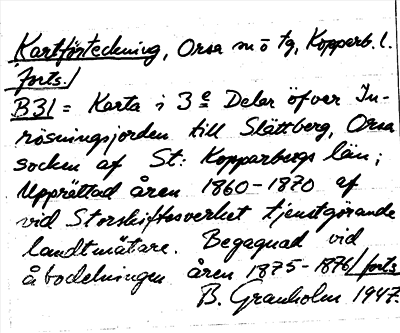 Kartförteckning, Orsa m ö tg, Kopparb. l.
forts./
B31 = Karta i 3e Delar öfver In-
rösningsjorden till Slättberg, Orsa
socken af St: Kopparbergs län;
Upprättad åren 1860-1870 af
vid Storskiftesverket tjenstgörande
landtmätare. Begagnad vid
åbodelningen åren 1875-1876/forts
B. Granholm 1947.